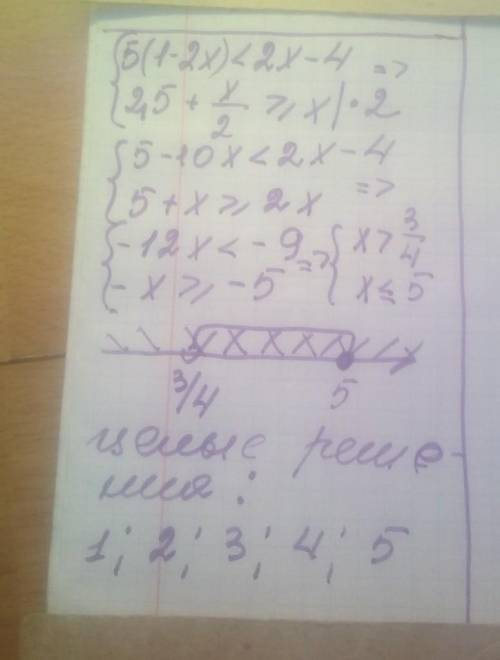 {5(1-2x)<2x-4 =>
{2,5 + x/2 ⩾ x|·2
{5-10x<2x-4
{5+x⩾2x =>
{-12x<-9 => {x>3/4
{-x⩾-5 {x≤5
3/4 5
целые реше-
ния:
1; 2; 3; 4; 5